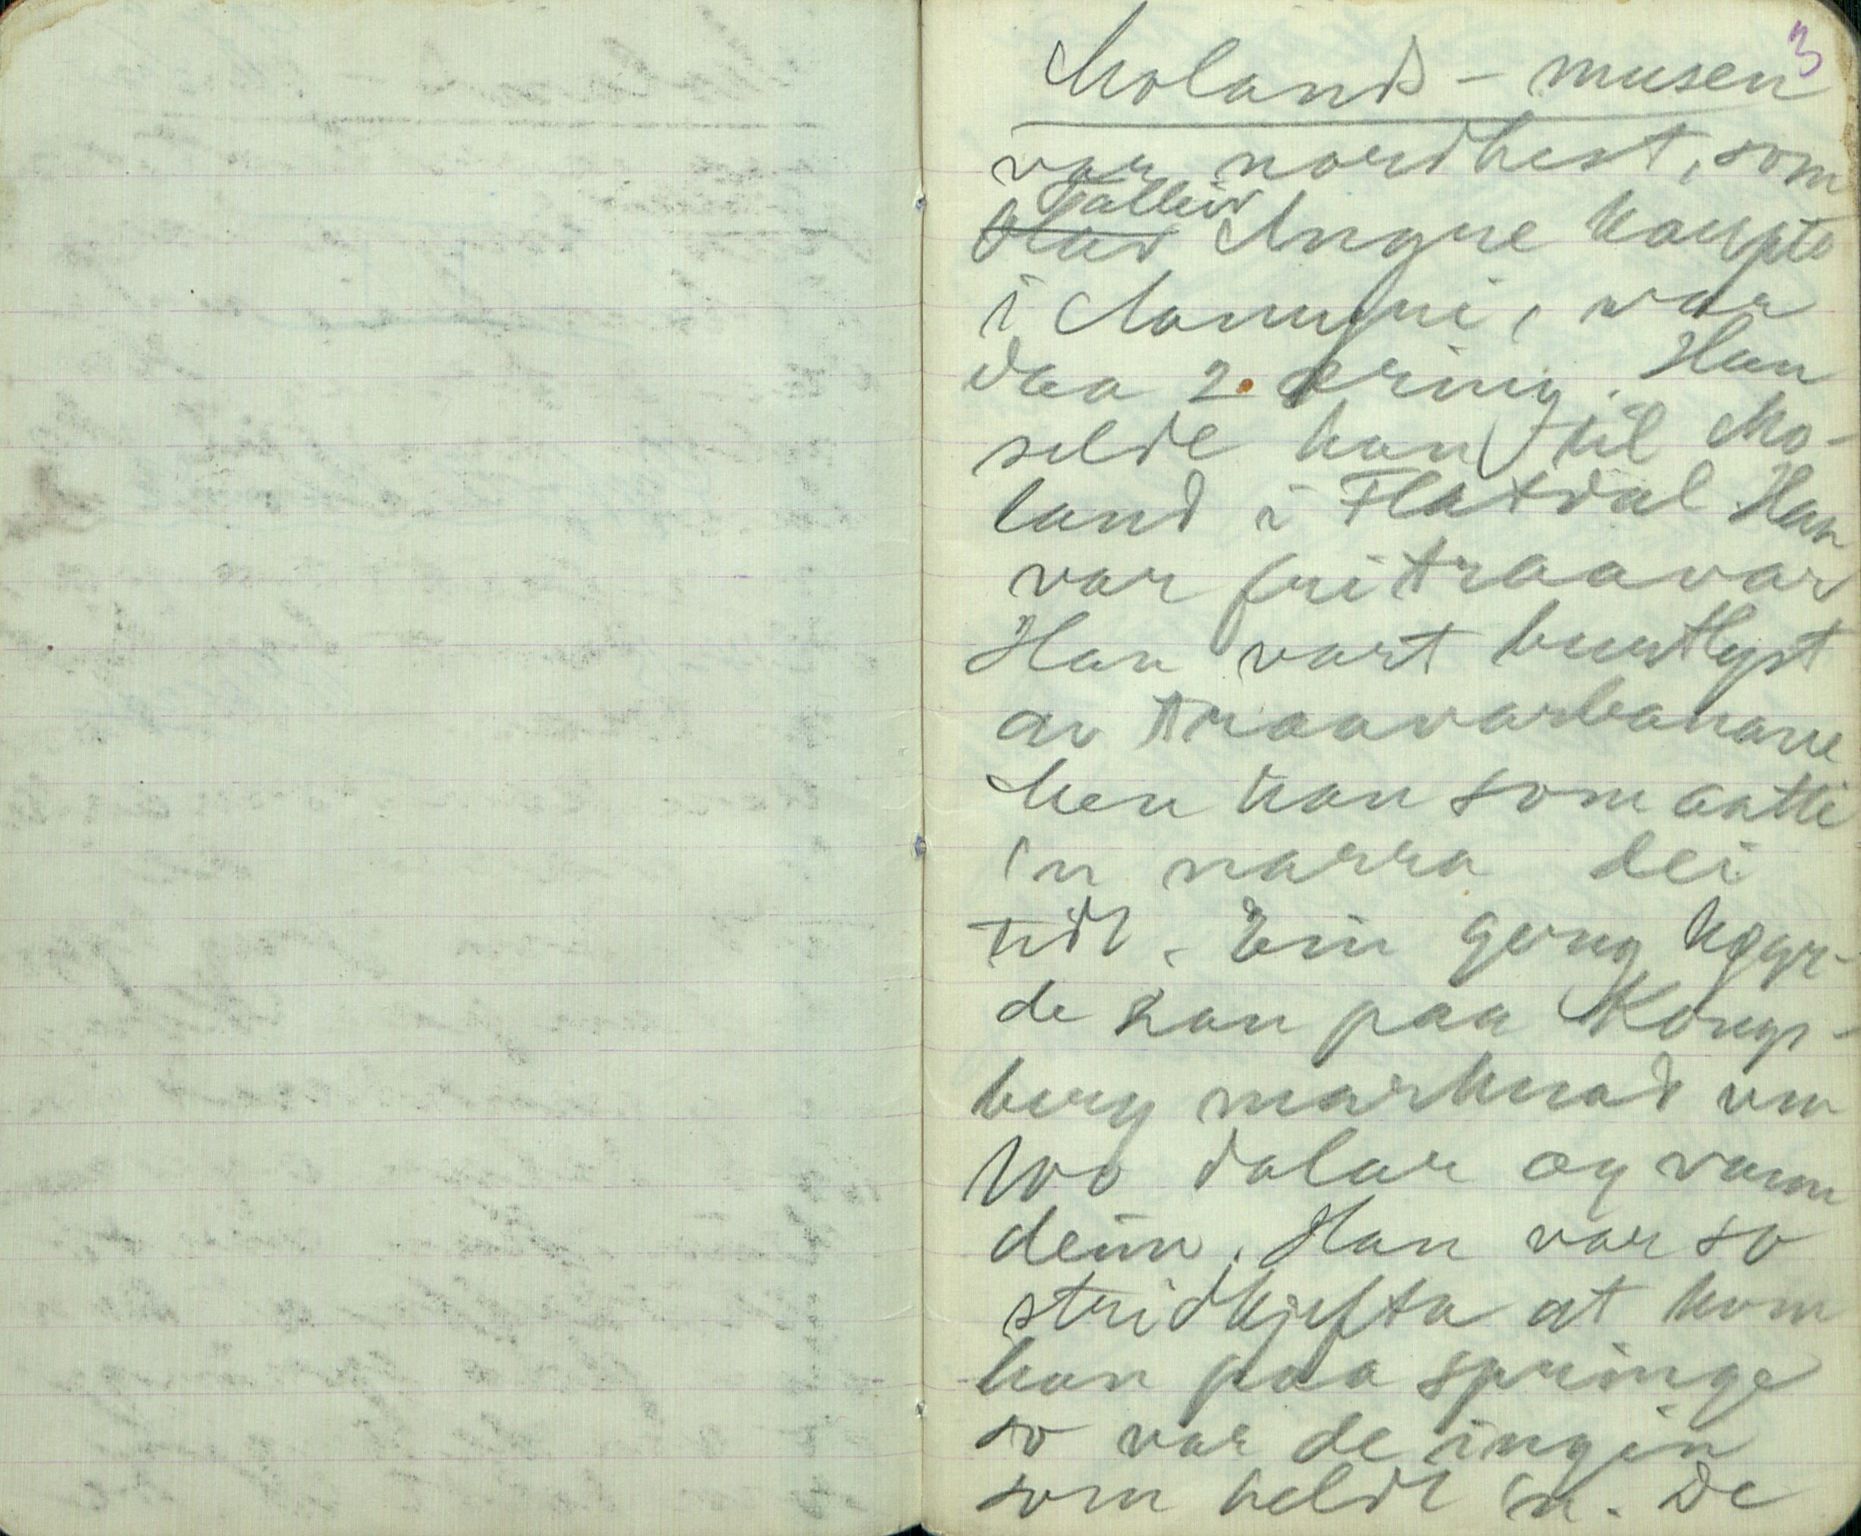 3
Molands-musen
var nordhest, som
Talleiv
Olav Yngve kaupte
i Manngni, var
daa 2. æring. Han
selde han til Mo-
land i Flatdal Han
var fritraavar
Han vart burtlyst
av traavarbanane
Men han som aatti
'n narra dei
tidt. Ein gong køyr-
de han paa Kongs-
berg marknad um
100 dalar og vann
deim. Han var so
stridkjefta at kom
han paa springe
so var de ingin
som heldt 'n. De